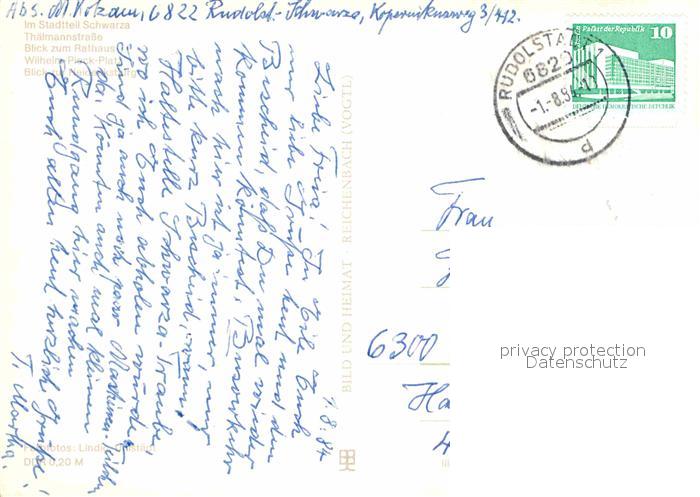 Abs. M. Kotzam, 6822 Rudolst.-Schwarza, Kopernikusweg 3/412.
Im Stadtteil Schwarza
Thälmannstraße
Blick zum Rathaus
Wilhelm-Pieck-Platz
Blick
1.8.84
Liebe Herta! In Eile Euch
nur liebe Grüße heut und den
Bescheid, daß Du mal wieder
kommen könntest. Busverkehr
nach hier ist ja immer, nur
bitte kurz Bescheid, wann,
Haltestelle Schwarza-Traube
wo ich Euch abholen würde.
Sind ja auch noch paar
da, könnten auch mal kleinen
Rundgang hier machen
Euch allen heut herzlich Grüße!
T. Martha.
BILD UND HEIMAT · REICHENBACH (VOGTL)
Palast der Republik
10
DEUTSCHE DEMOKRATISCHE REPUBLIK
RUDOLSTADT 1
6820
-1.-8.84
p
Frau
6300
privacy protection
Datenschutz
Farbfotos:
DDR 0,20 M